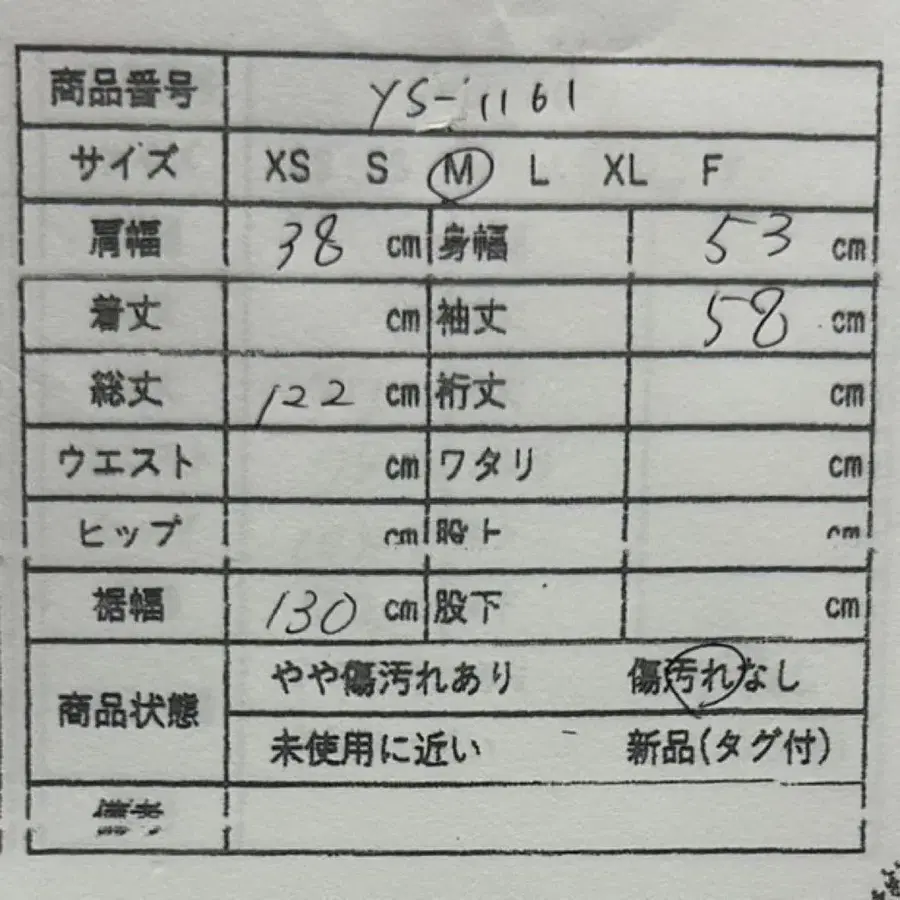 商品番号 YS-1161
サイズ XS S M L XL F
肩幅 38 cm 身幅 53 cm
着丈 cm 袖丈 58 cm
総丈 122 cm 裄丈 cm
ウエスト cm ワタリ cm
ヒップ cm 股上 cm
裾幅 130 cm 股下 cm
商品状態 やや傷汚れあり 傷汚れなし
未使用に近い 新品(タグ付)